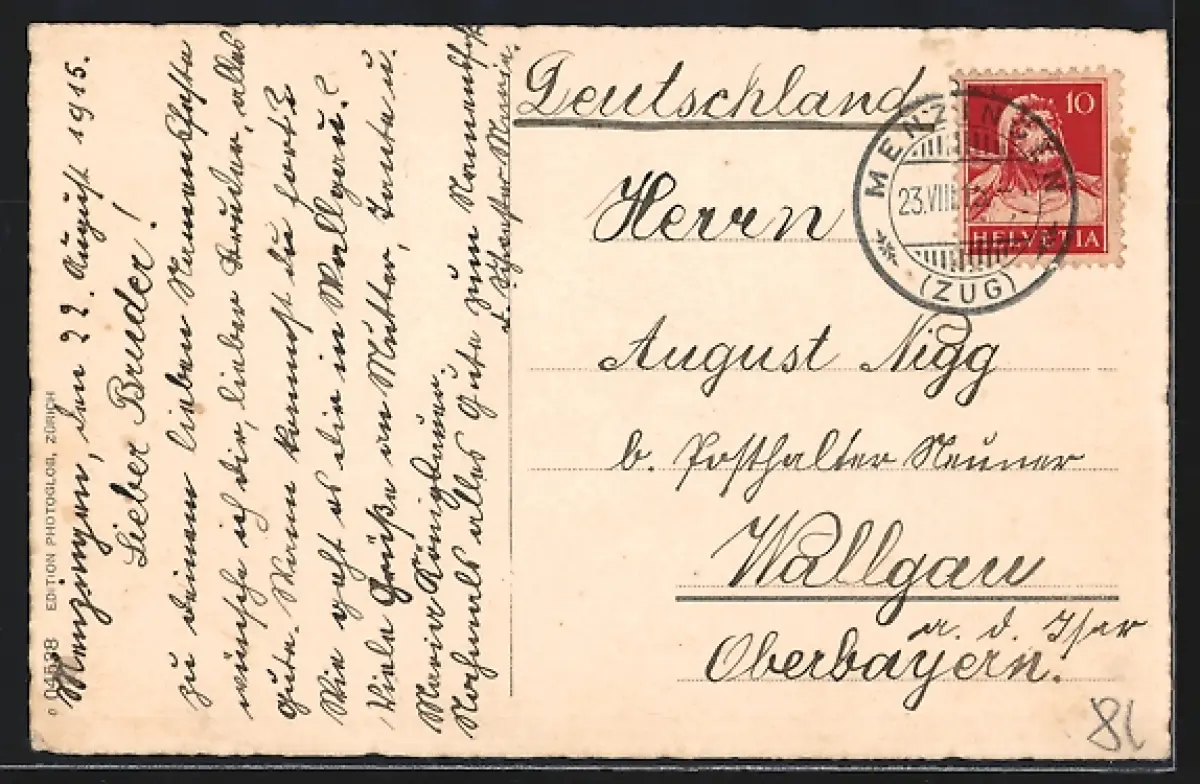 Menzingen, den 22. August 1915.
Lieber Bruder!
Zu deinem lieben Namensfeste
wünsche ich dir, lieber Bruder, alles
Gute. Wann kommst du fort?
Wie geht es dir in Wallgau?
Viele Grüße an Mutter, Tante u.
Maria Königbauer.
Nochmals alles Gute zum Namensfest
d. Schwester Maria.
EDITION PHOTOGLOB, ZÜRICH
Deutschland
Herrn
August Nigg
b. Posthalter Neuner
Wallgau
a. d. Isar
Oberbayern.
10
HELVETIA
MENZINGEN
23.VIII.
(ZUG)